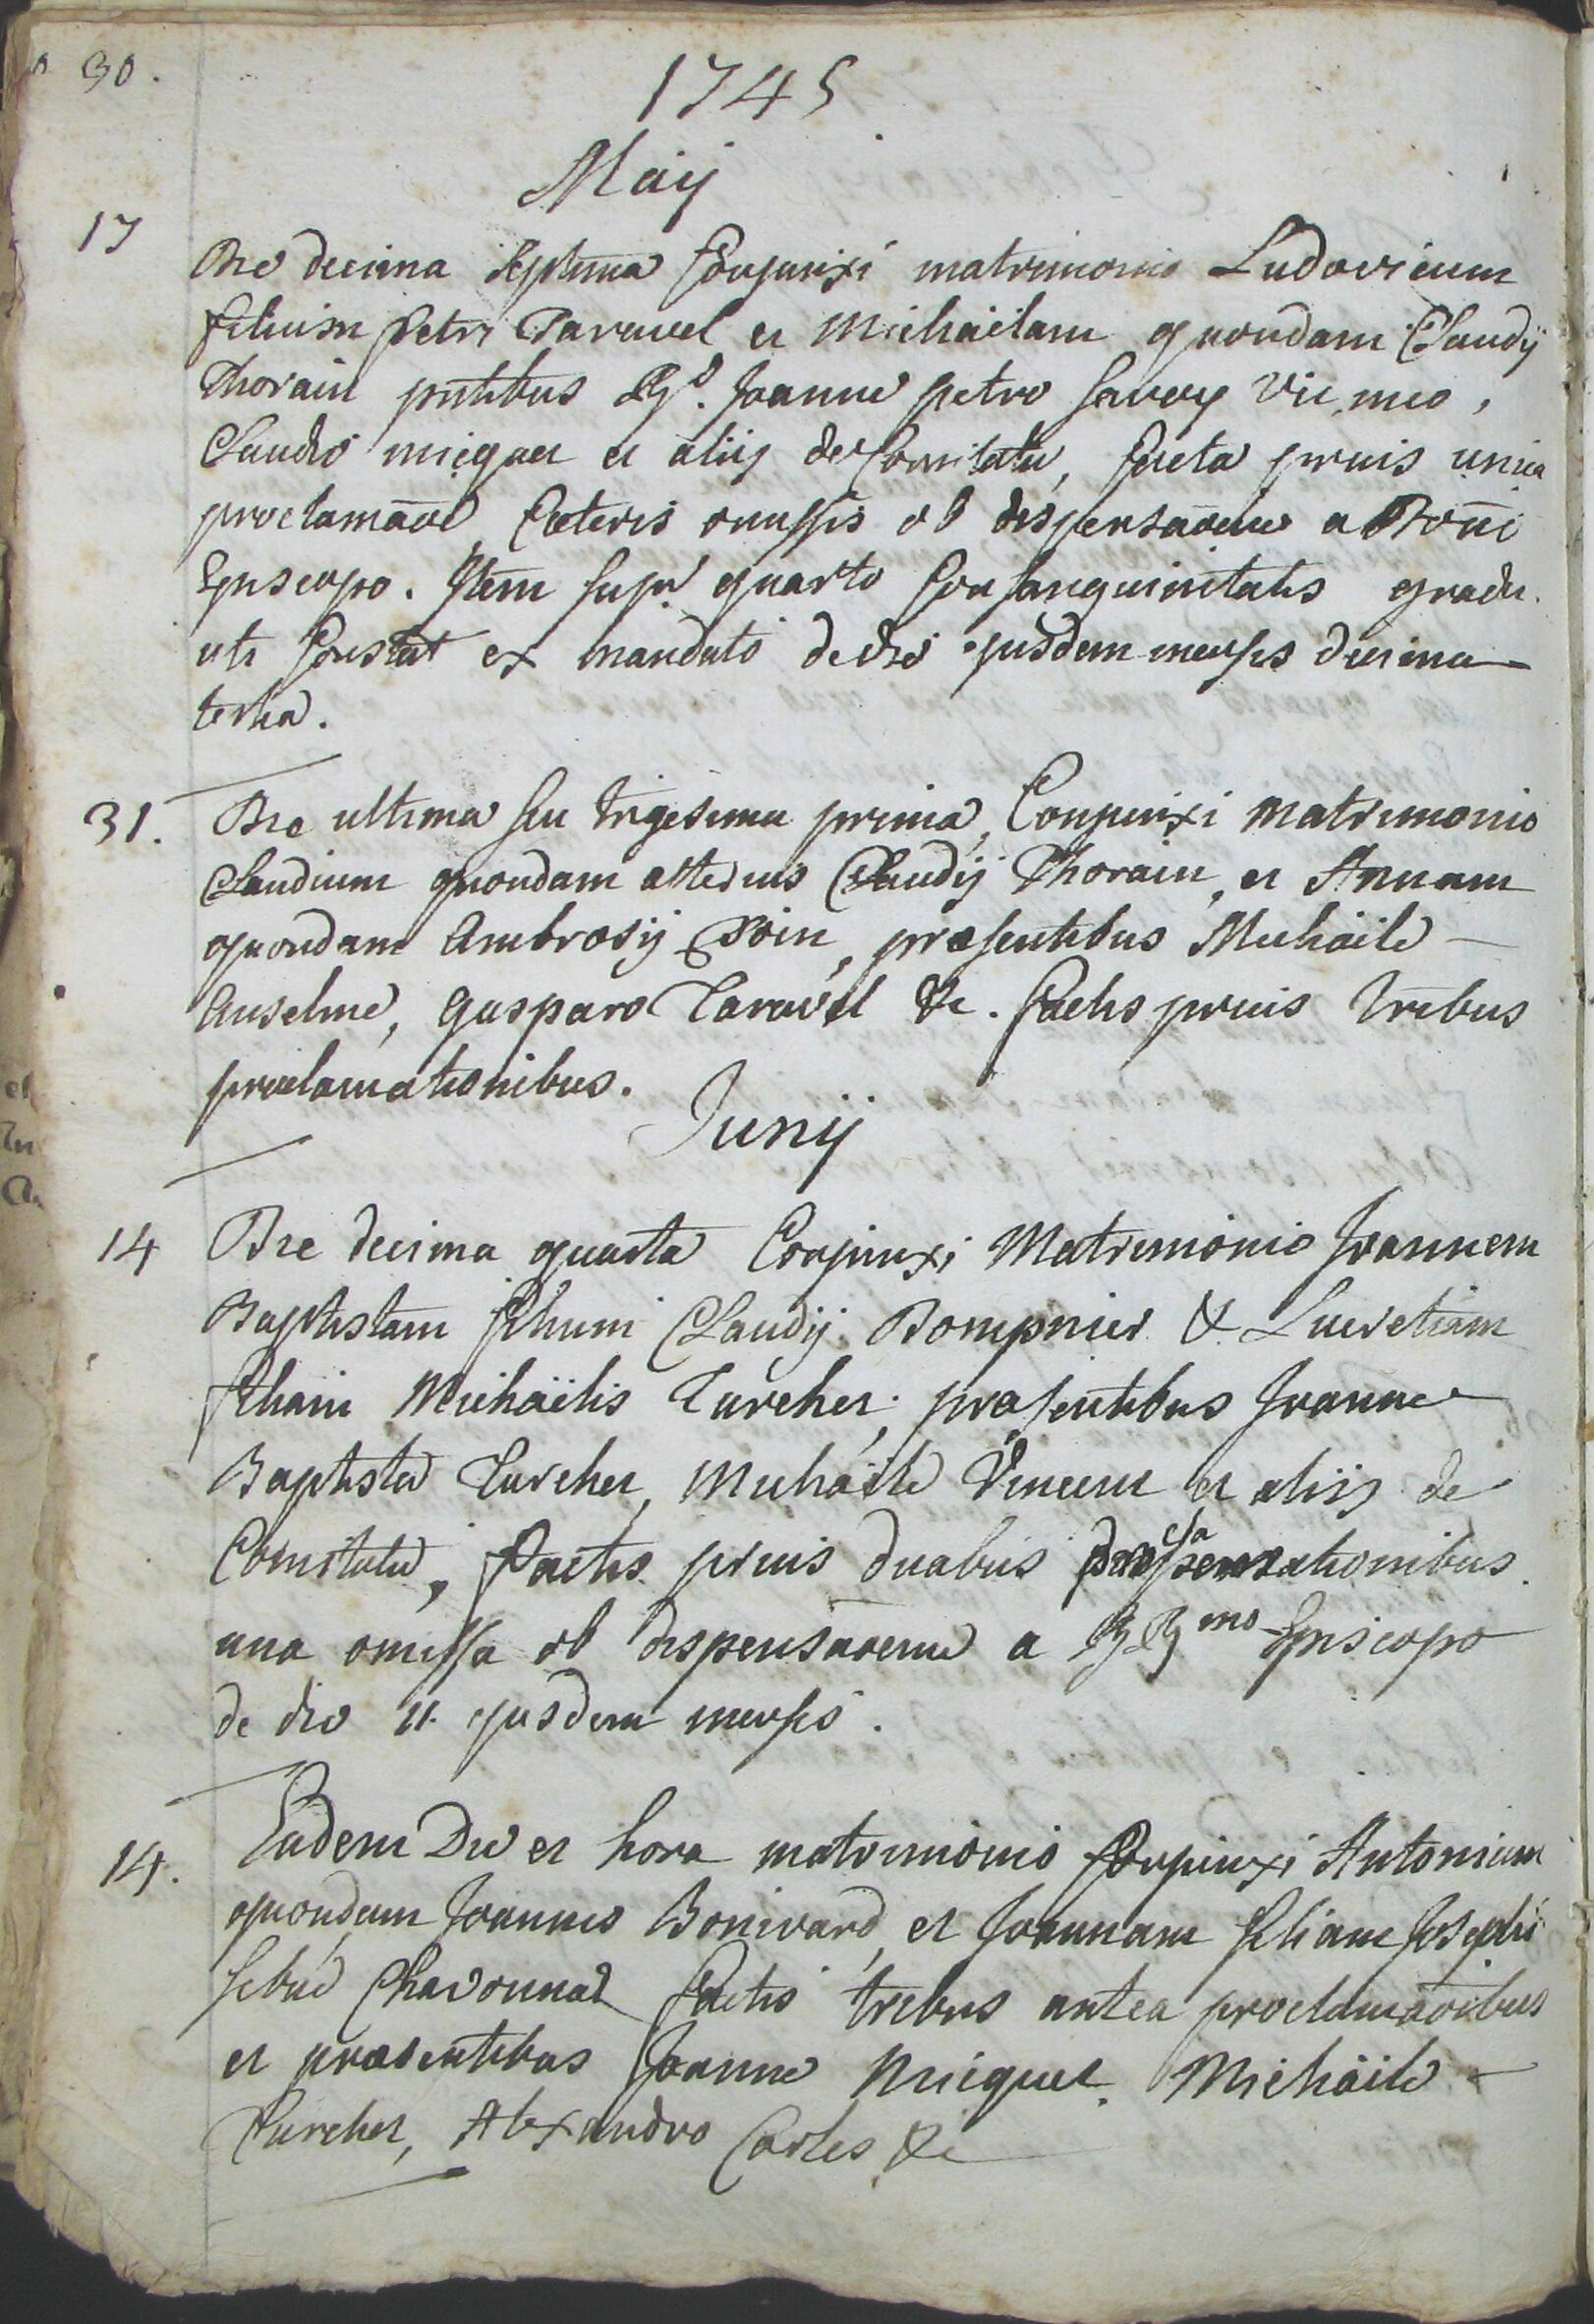 30.
1745
Maij
17
Die decima septima Conjunxi matrimonio Ludovicum
filium Petri Taravel et Michaëlam quondam Claudij
Thorain pntibus Rdo. Joanne petro Savoy Vic, meo,
Claudio miquet et alijs de Comitatu, facta prius unica
proclamaōe, Cæteris omissis ob dispensaōem a
Episcopo. Item supr quarto Consanguinitatis gradu.
uti Constat ex mandato de die ejusdem mensis decima
tertia.
31.
Die ultima seu trigesima prima, Conjunxi matrimonio
Claudium quondam alterius Claudij Thorain, et Annam
quondam Ambrosij Join, præsentibus Michaële
Anselme, gasparo Taravel &c. factis prius tribus
proclamationibus.
Junij
14
Die decima quarta Conjunxi Matrimonio Joannem
Baptistam filium Claudij Bompnier & Lucretiam
filiam Michaëlis Turcher, præsentibus Joanne
Baptista Turcher, Michaële Vincent et alijs de
Comitatu, factis prius duabus
una omissa ob dispensaōem a RRmo Episcopo
de die 11. ejusdem mensis.
14.
Eadem Die et hora matrimonio Conjunxi Antonium
quondam Joannis Bonivard, et Joannam filiam Josephi
sibué Chavonnal factis tribus antea proclamaōibus
et præsentibus Joanne Miquet. Michaële
Turcher, Alexandro Carles &c